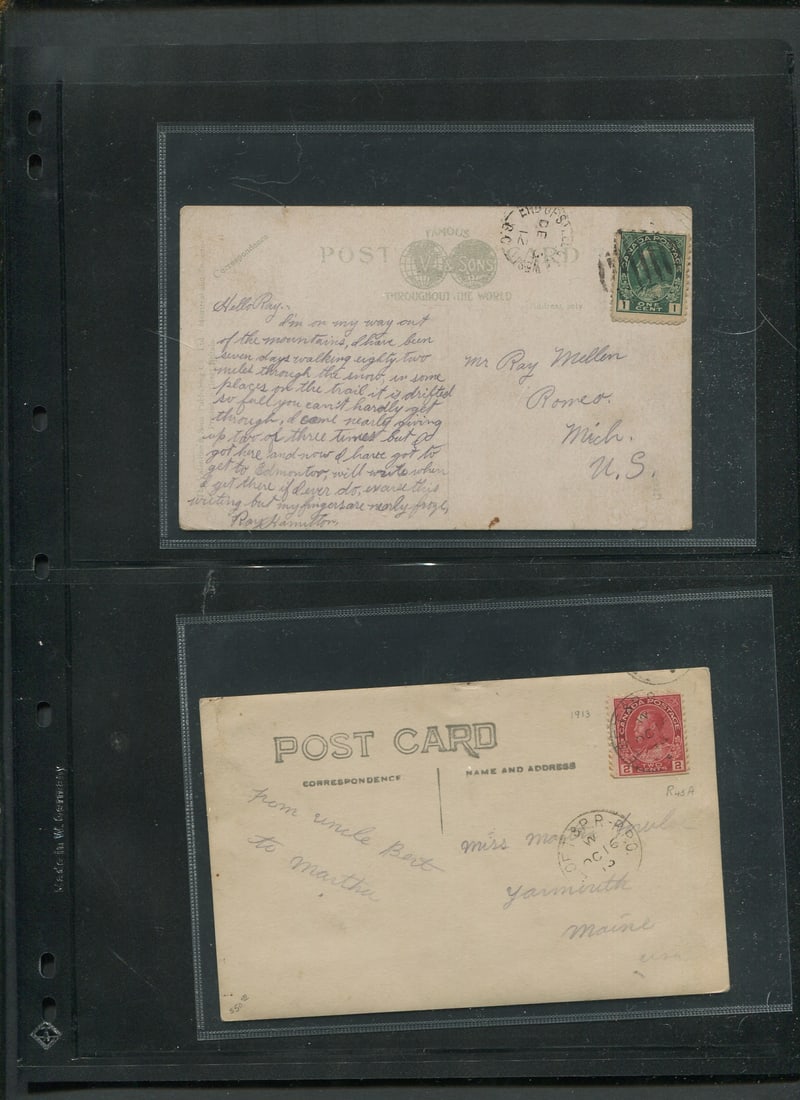 Correspondence
FAMOUS
POST CARD
VALENTINE & SONS
THROUGHOUT THE WORLD
Address only
END OF STEEL
DE
12
1
ONE
CENT
1
CANADA POSTAGE
Hello Ray.
I'm on my way out
of the mountains, I have been
seven days walking eighty two
miles through the snow, in some
places on the trail it is drifted
so full you can't hardly get
through, I come nearly giving
up two of three times but I
got here and now I have got to
get to Edmonton, will write when
I get there if I ever do, excuse this
writing but my fingers are nearly froze,
Ray Hamilton.
Mr Ray Mellen
Romeo.
Mich.
U.S.
1913
CANADA POSTAGE
2
TWO
CENTS
2
POST CARD
CORRESPONDENCE
NAME AND ADDRESS
from uncle Bert
to Martha
Miss
Yarmouth
Maine
USA
R.P.O.
OC 16
Made in W. Germany